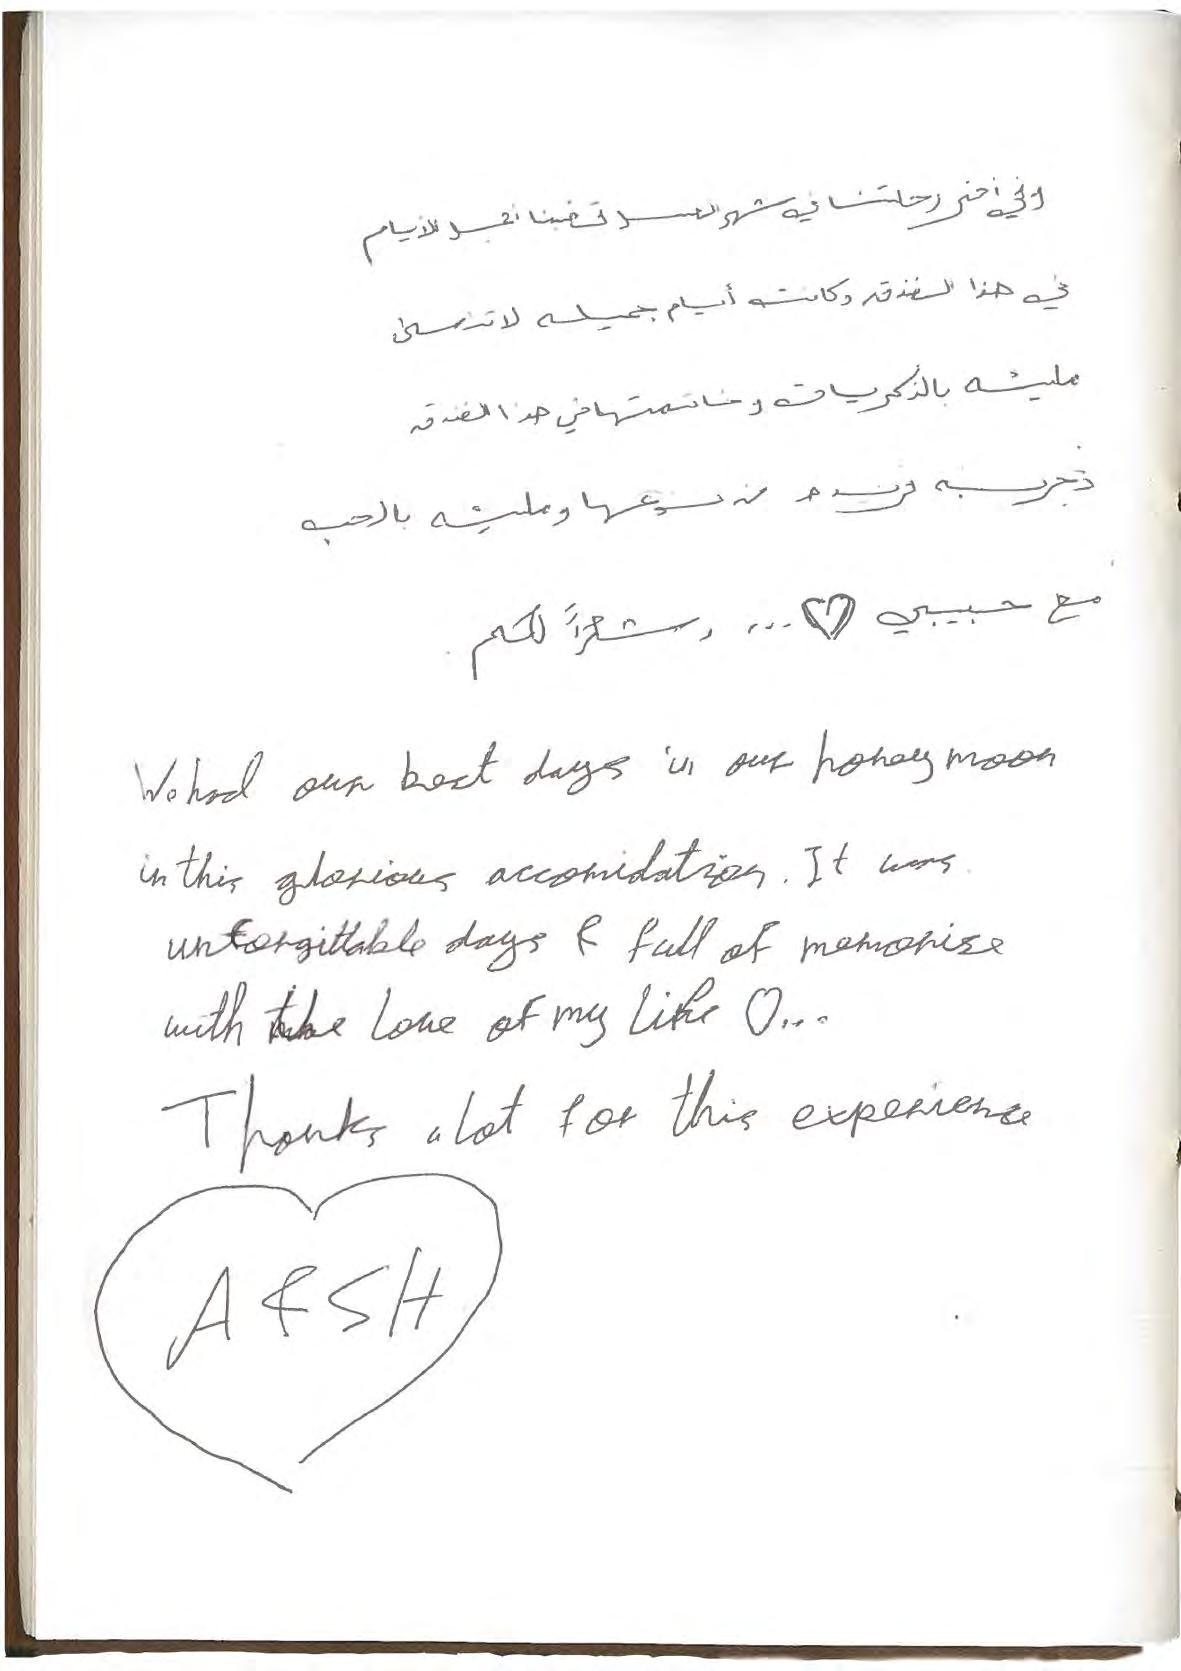 وفي آخر رحلتنا في شهر العسل قضينا أجمل الأيام
في هذا الفندق وكانت أيام جميله لا تنسى
مليئه بالذكريات وخاتمتها في هذا الفندق
تجربه فريده من نوعها ومليئه بالحب
مع حبيبي ♡ ... وشكراً لكم
We had our best days in our honeymoon
in this glorious accomidation. It was
unforgittable days & full of memorise
with the love of my life ♡...
Thanks alot for this experience
A & SH